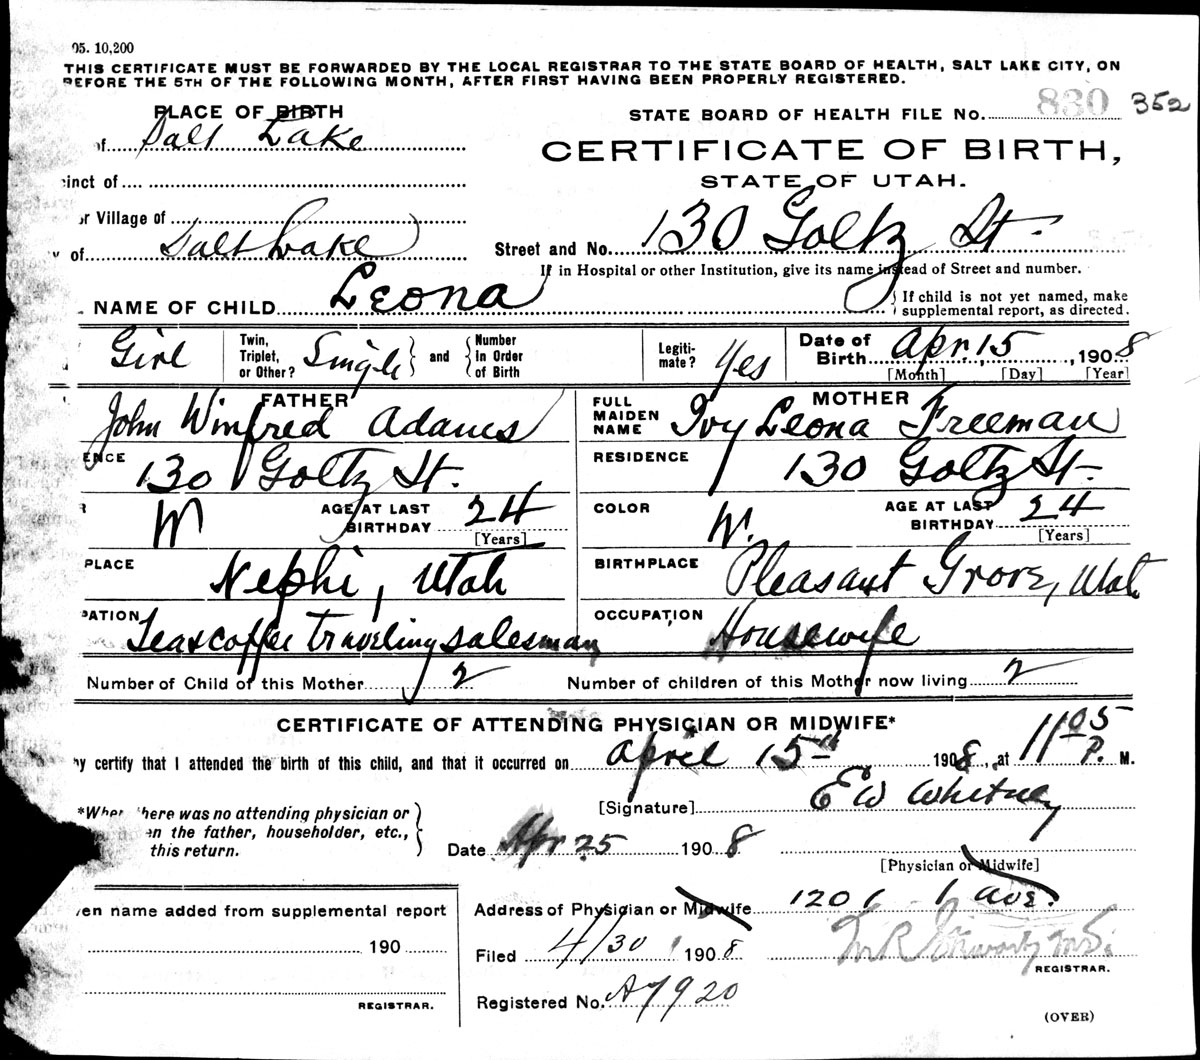 05. 10,200
THIS CERTIFICATE MUST BE FORWARDED BY THE LOCAL REGISTRAR TO THE STATE BOARD OF HEALTH, SALT LAKE CITY, ON
BEFORE THE 5TH OF THE FOLLOWING MONTH, AFTER FIRST HAVING BEEN PROPERLY REGISTERED.
PLACE OF BIRTH
STATE BOARD OF HEALTH FILE No. 830 352
of Salt Lake
CERTIFICATE OF BIRTH,
inct of
STATE OF UTAH.
or Village of
y of Salt Lake
Street and No. 130 Goltz St.
If in Hospital or other Institution, give its name instead of Street and number.
NAME OF CHILD Leona
If child is not yet named, make
supplemental report, as directed.
Girl Twin, Triplet, or Other? Single and Number In Order of Birth Legiti-mate? Yes Date of Birth Apr. 15, 1908
[Month] [Day] [Year]
FATHER
FULL MAIDEN NAME MOTHER
John Winfred Adams Ivy Leona Freeman
ENCE 130 Goltz St. RESIDENCE 130 Goltz St.
R W AGE AT LAST BIRTHDAY 24 [Years] COLOR W. AGE AT LAST BIRTHDAY 24 [Years]
PLACE Nephi, Utah BIRTHPLACE Pleasant Grove, Utah
PATION Tea&coffee traveling salesman OCCUPATION Housewife
Number of Child of this Mother 2 Number of children of this Mother now living 2
CERTIFICATE OF ATTENDING PHYSICIAN OR MIDWIFE*
by certify that I attended the birth of this child, and that it occurred on April 15th 1908, at 11 05 P. M.
*When there was no attending physician or
[Signature] E W Whitney
en the father, householder, etc.,
this return.
Date Apr 25 1908
[Physician or Midwife]
en name added from supplemental report
Address of Physician or Midwife 1206 1 ave.
190
Filed 4/30 1908
REGISTRAR.
REGISTRAR.
Registered No. A7920
(OVER)